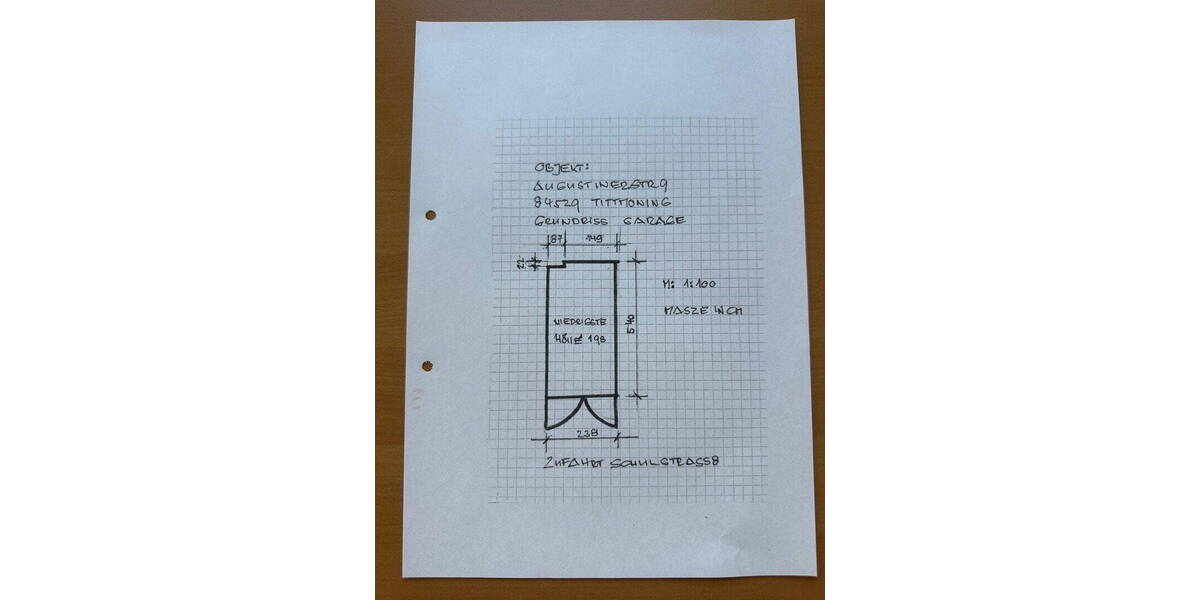 OBJEKT:
AUGUSTINERSTR 9
84529 TITTMONING
GRUNDRISS GARAGE
87 149
22
M: 1:100
MASZE IN CM
NIEDRIGSTE
HÖHE 198
540
238
ZUFAHRT SCHULSTRASSE